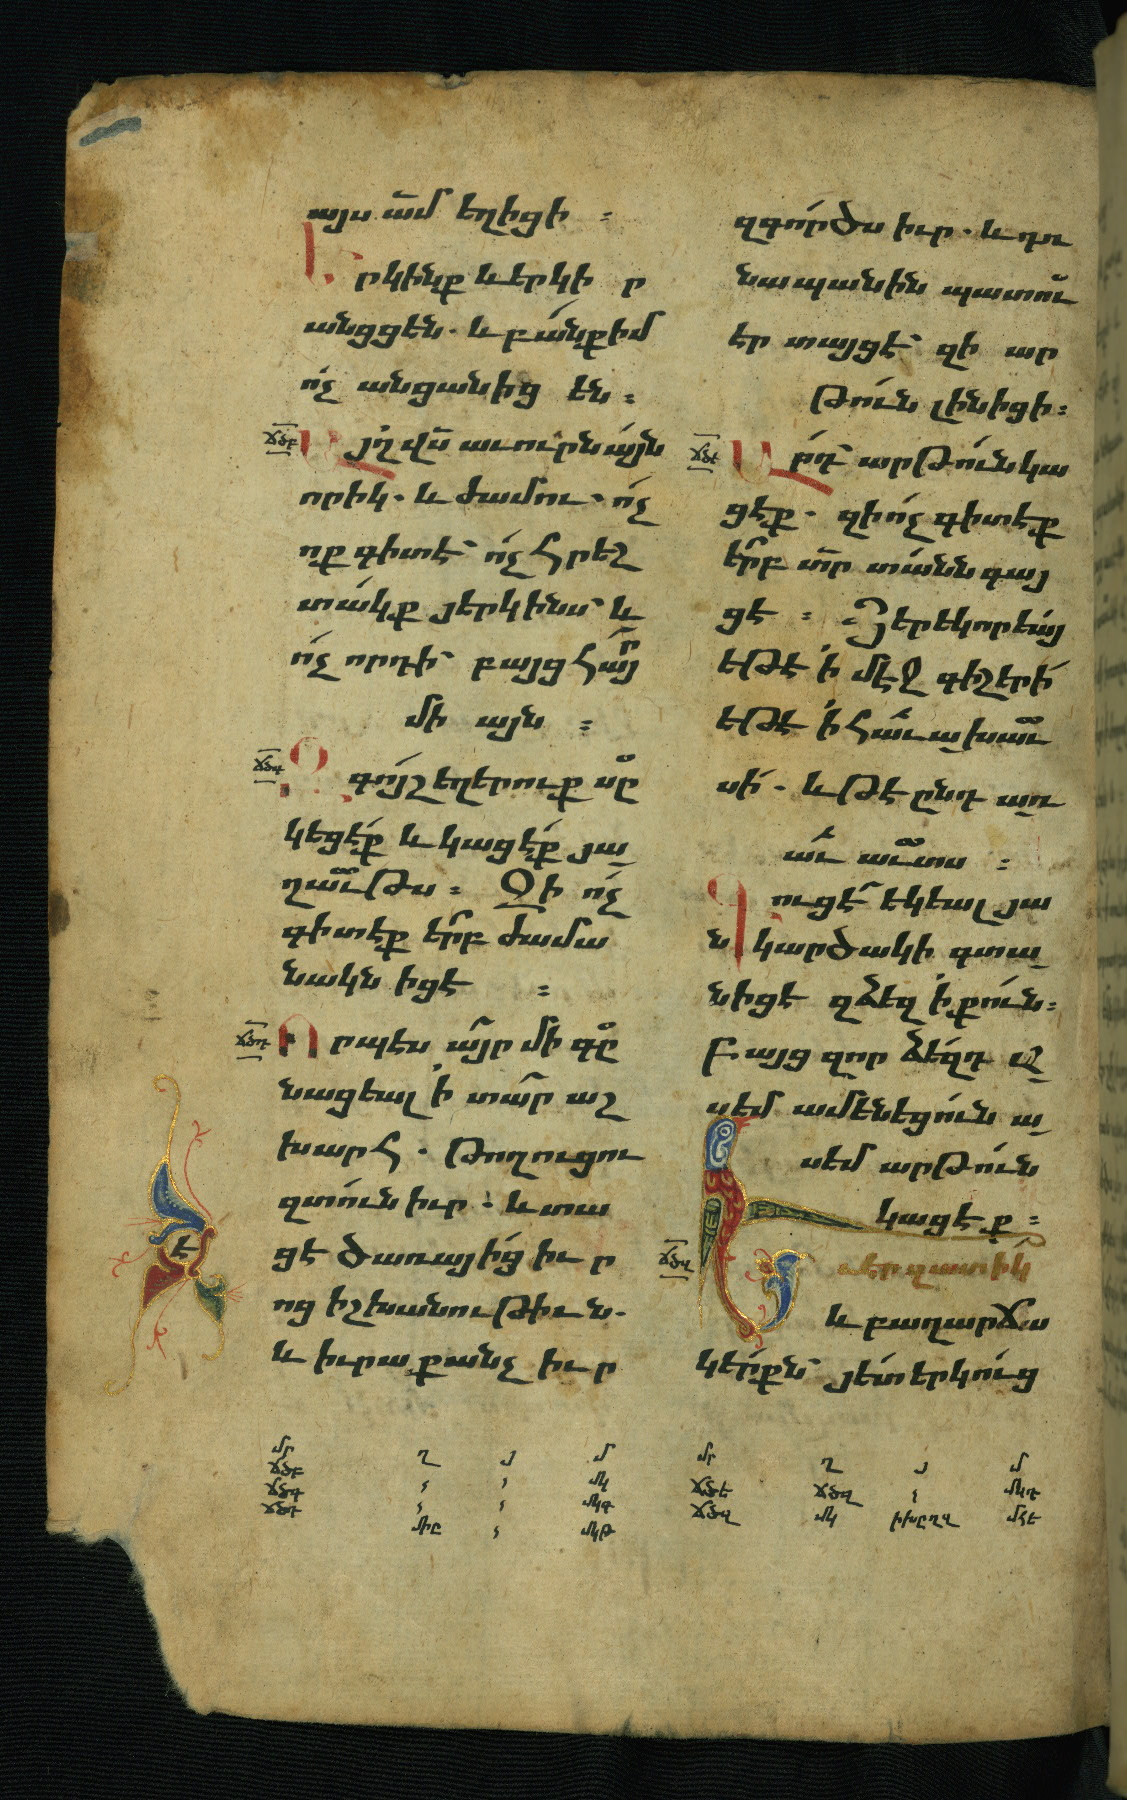 այս ա՟մ եղիցի ։
Երկինք և երկիր
անցցեն. և բանք իմ
ոչ անցանիցեն ։
ճծբ
Այղ վս՟ աւուրն այն
որիկ. և ժամու. ոչ
ոք գիտէ՝ ոչ հրեշ
տակք յերկինս՝ և
ոչ որդի՝ բայց հա՟յ
մի այն ։
ճծգ
Զգոյշ եղերուք սը
կեցէք և կացէք յա
ղաւ՟թս ։ Զի ոչ
գիտէք ե՟րբ ժամա
նակն իցէ ։
ճծդ
Որպէս այր մի գը
նացեալ ի տար աշ
խարհ. թողուցու
զտուն իւր. և տա
է
ցէ ծառայից իւր
ոց իշխանութիւն.
և իւրաքանչիւր
զգործս իւր. և դռ
նապանին պատու
էր տայցէ՝ զի ար
թուն լինիցի ։
ճծե
Արդ՝ արթուն կա
ցէք. զի ոչ գիտէք
ե՟րբ տ՟ր տանն գայ
ցէ ։ Յերեկորեայ
եթէ ի մէջ գիշերի
եթէ ի հաւախաւ
սի. և թէ ընդ առ
աւ աւտս ։
Գուցէ եկեալ յա
նկարծակի գտա
նիցէ զձեզ ի քուն ։
Բայց զոր ձեզդ ա
սեմ ամենեցուն ա
սեմ արթուն
կացէք ։
ճծզ
Եւ էր զատիկ
և բաղարճա
կերքն՝ յետ երկուց
մր ղ յ մ
ճծբ
ճծգ մկ
ճծդ մկգ
միը մկթ
մր ղ յ մ
ճծե ճծզ մկդ
ճծզ մկ մհե